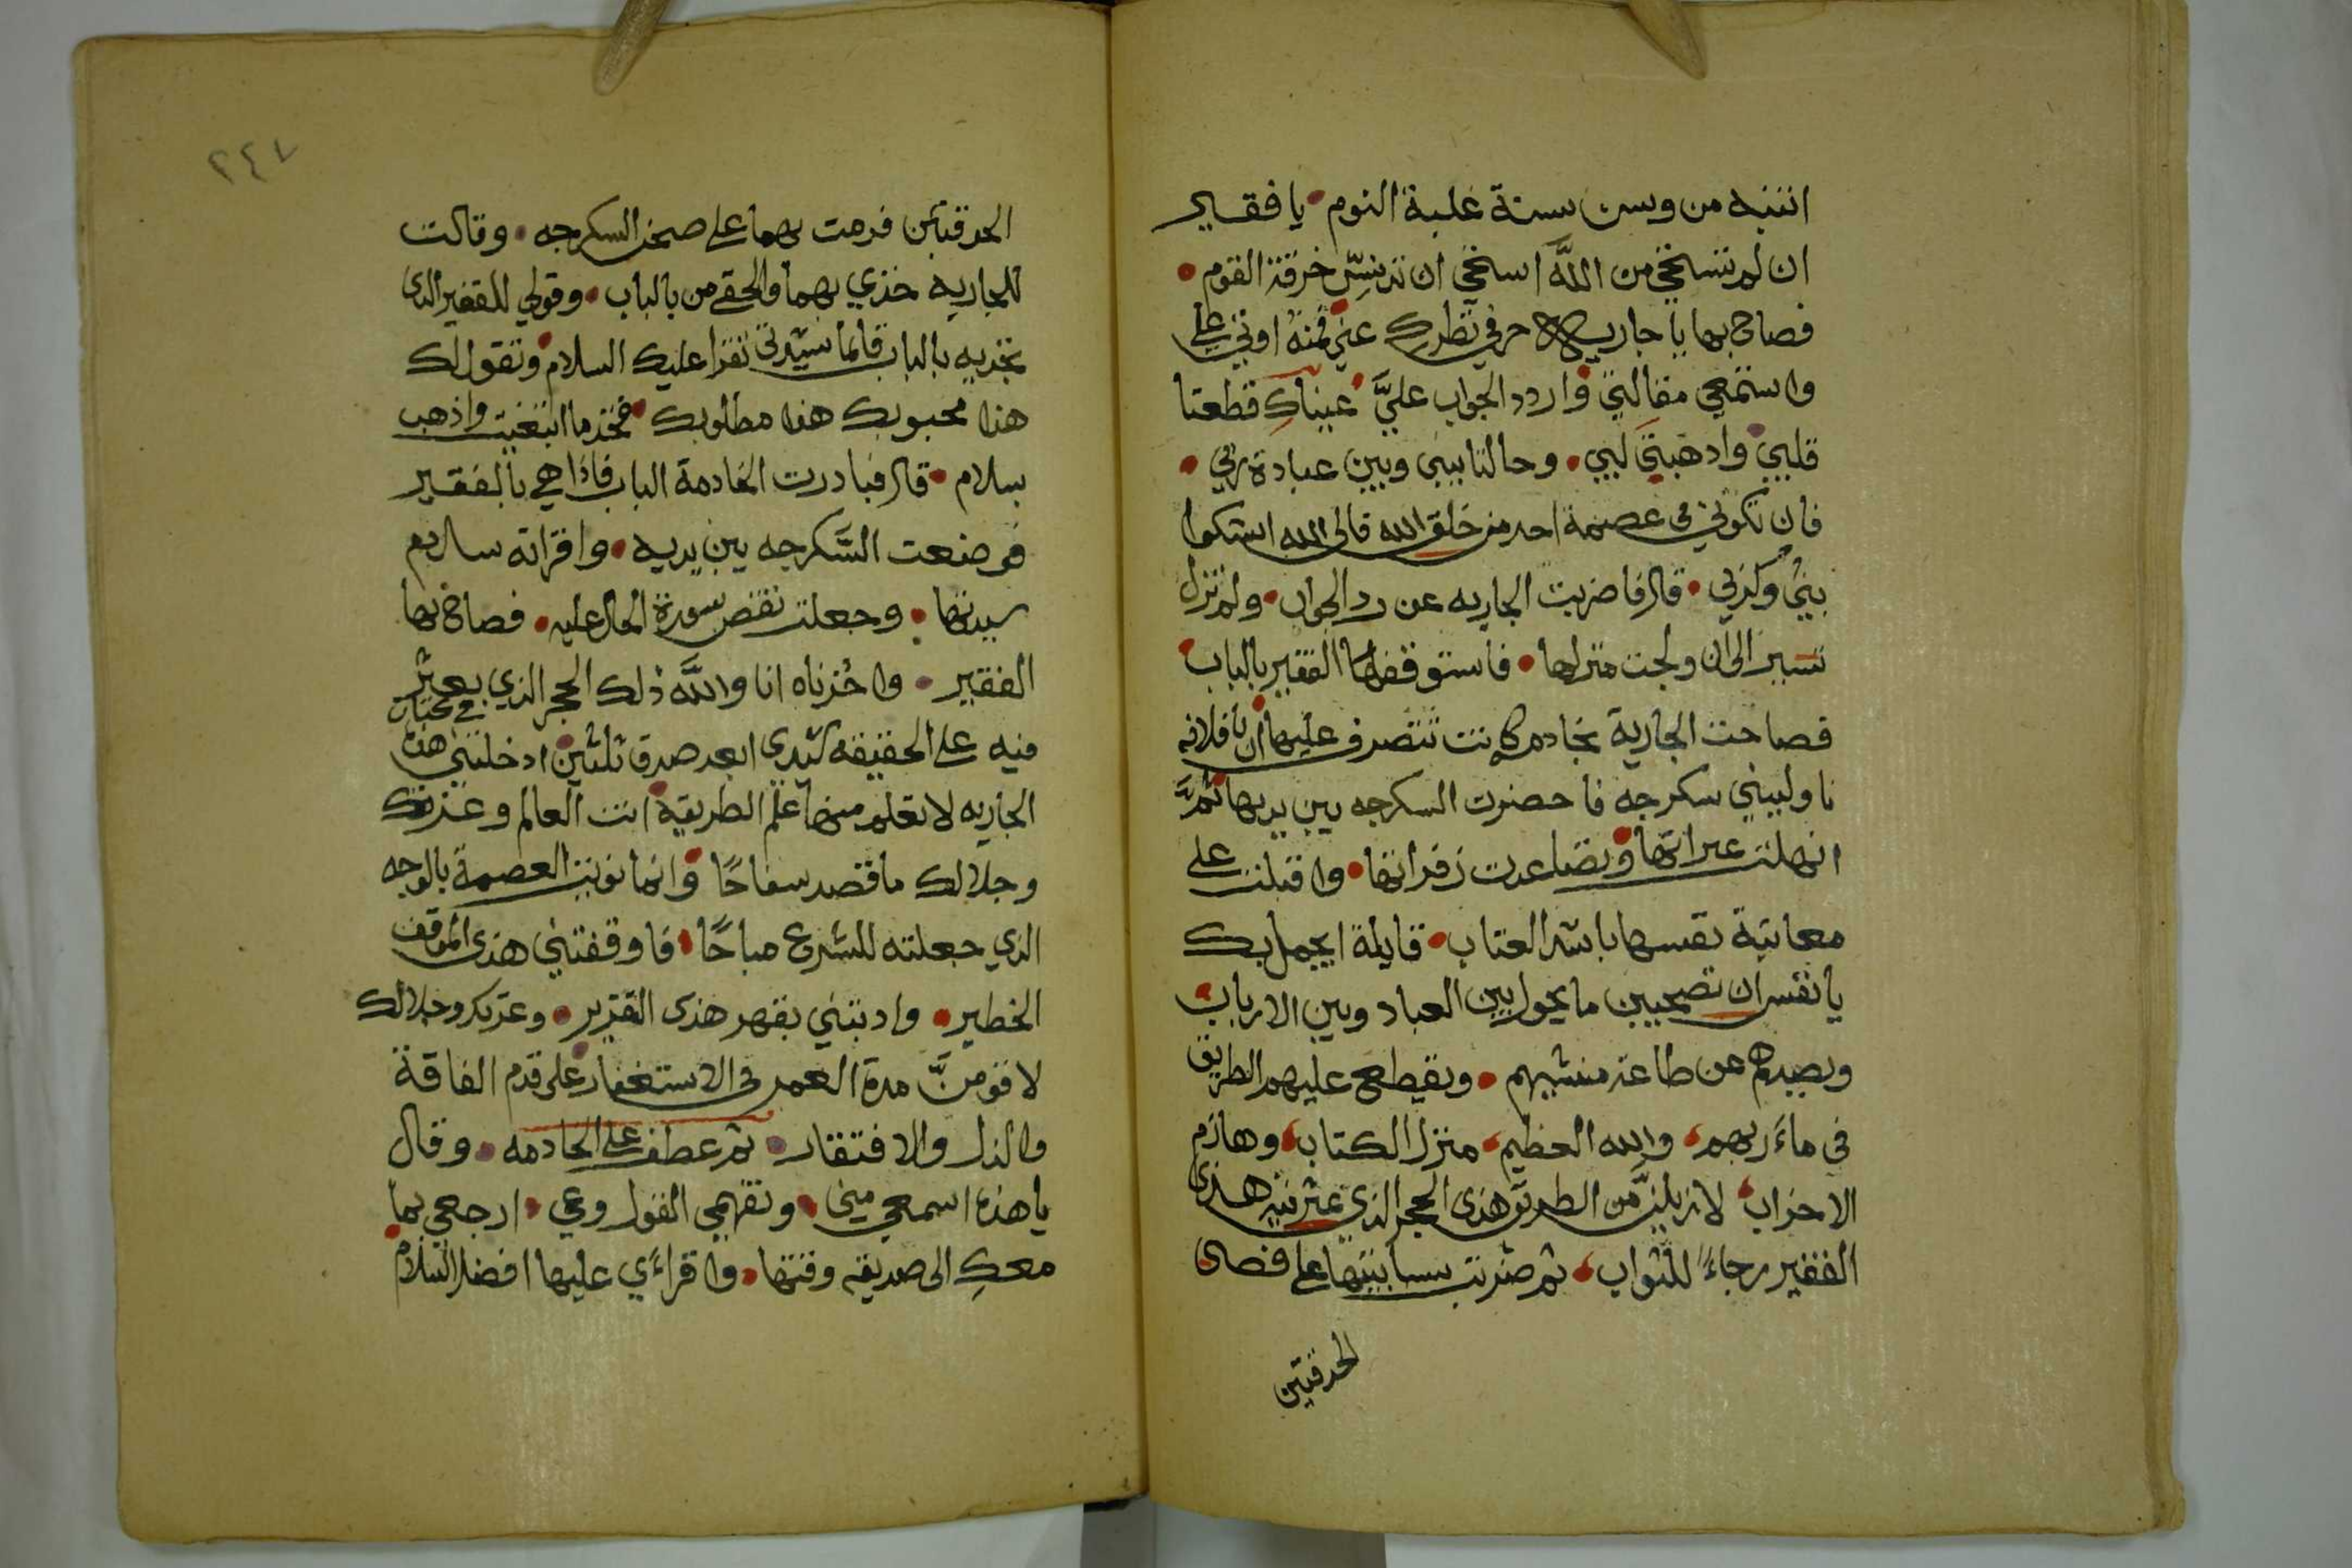 انتبه من وسن سنة غلبة النوم • يا فقير
ان لم تستحي من الله استحي ان تدنس خرقة القوم •
فصاح بها يا جارية حرفي نظرك عني فمنه اوتي علي
واستمعي مقالتي واردد الجواب عليَّ عيناكِ قطعتا
قلبي وادهبتي لبي • وحالتا بيني وبين عبادة ربي •
فان تكوني في عصمة احد من خلق الله فالى الله اشكوا
بثي وكربي • قال فاضربت الجاريه عن رد الجواب • ولم تزل
تسير الى ان ولجت منزلها • فاستوقفها الفقير بالباب
فصاحت الجارية بخادم كانت تتصرف عليها ان يا فلانه
ناوليني سكرجه فاحضرت السكرجه بين يديها ثمَّ
انهلت عبراتها وتصاعدت زفراتها • واقبلت على
معاتبة نفسها باشد العتاب • قايلة ايجمل بك
يا نفس ان تصحبين ما يحول بين العباد وبين الارباب
ويصدهم عن طاعة منشيهم • ويقطع عليهم الطريق
في ماء ربهم، والله العظيم، منزل الكتاب، وهازم
الاحزاب، لازيلنَّ من الطريق هذى الحجر الذي عثر فيه هذى
الفقير رجاءً للثواب، ثم ضربت بسبابتيها على فصى
الحدقتين
٢٤٧
الحدقتين فرمت بهما على صحن السكرجه • وقالت
للجاريه خذي بهما والحقي من بالباب • وقولي للفقير الذى
تجديه بالباب قائما سيدتى تقرا عليك السلام وتقول لك
هذا محبوبك هذا مطلوبك فخذ ما ابتغيت واذهب
بسلام • قال فبادرت الخادمة الباب فاذا هي بالفقير
فوضعت السَّكرجه بين يديه • واقراته سلام
سيدتها • وجعلت تقص سورة الحال عليه • فصاح بها
الفقير • واحزناه انا والله ذلك الحجر الذي يعثر
فيه على الحقيقه سيدى ابعد صدق ثلثين ادخلتني هذا
الجاريه لا تعلم منها علم الطريقة انت العالم وعزتك
وجلالك ما قصد سفاحًا وانما نويت العصمة بالوجه
الذي جعلته للشروع مباحًا • فاوقفتني هذى الموقف
الخطير • وادبتني بقهر هذى التقدير • وعزتك وجلالك
لاقومنَّ مدة العمر في الاستغفار على قدم الفاقة
والذل والافتقار • ثم عطف على الخادمه • وقال
يا هذه اسمعي مني • وتفهمي القول وعي • ارجعي بما
معكِ الى صديقة وقتها • واقراءي عليها افضل السلام